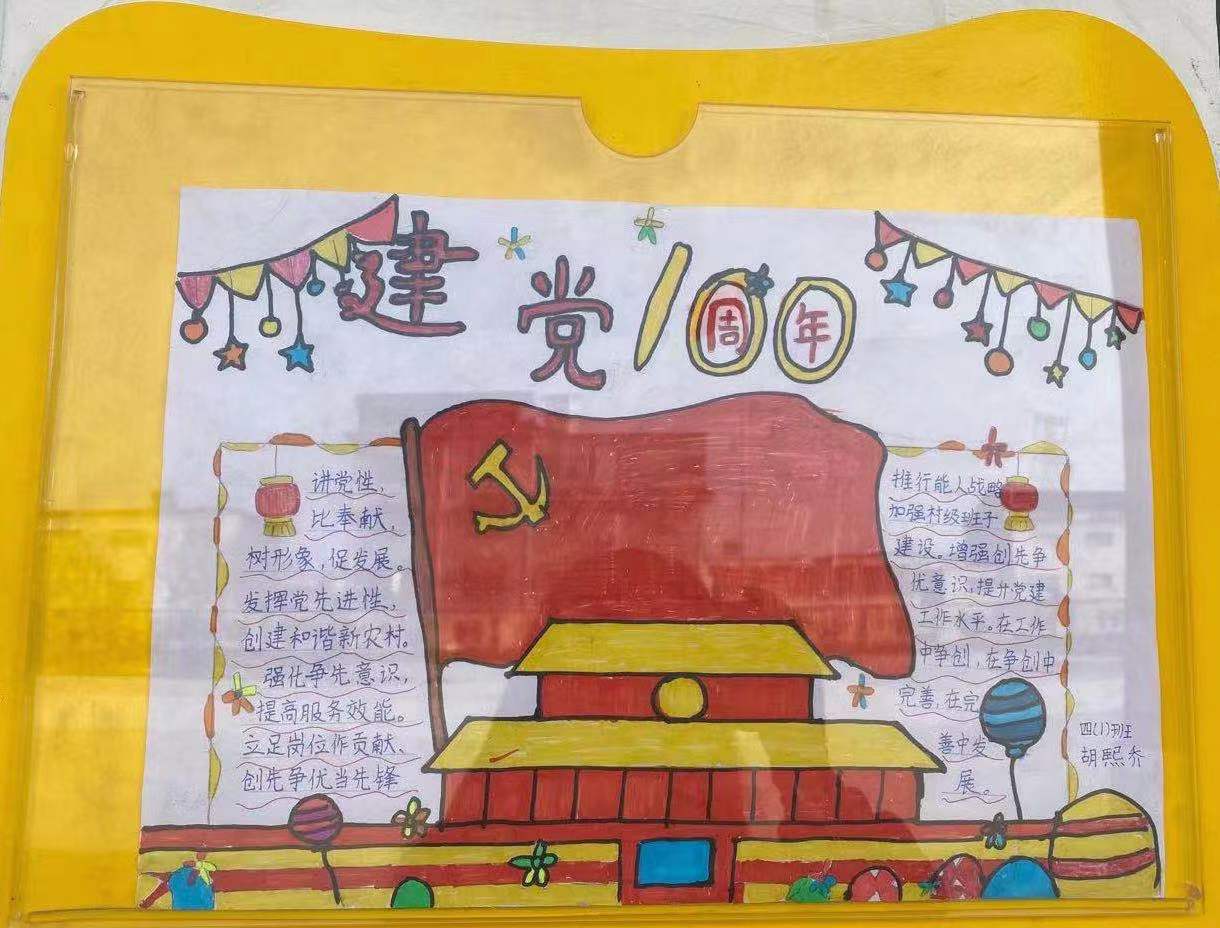 建党100
周年
讲党性，
比奉献，
树形象，促发展。
发挥党先进性，
创建和谐新农村。
强化争先意识，
提高服务效能。
立足岗位作贡献、
创先争优当先锋
推行能人战略
加强村级班子
建设。增强创先争
优意识，提升党建
工作水平。在工作
中争创，在争创中
完善，在完
善中发
展。
四(1)班
胡熙乔